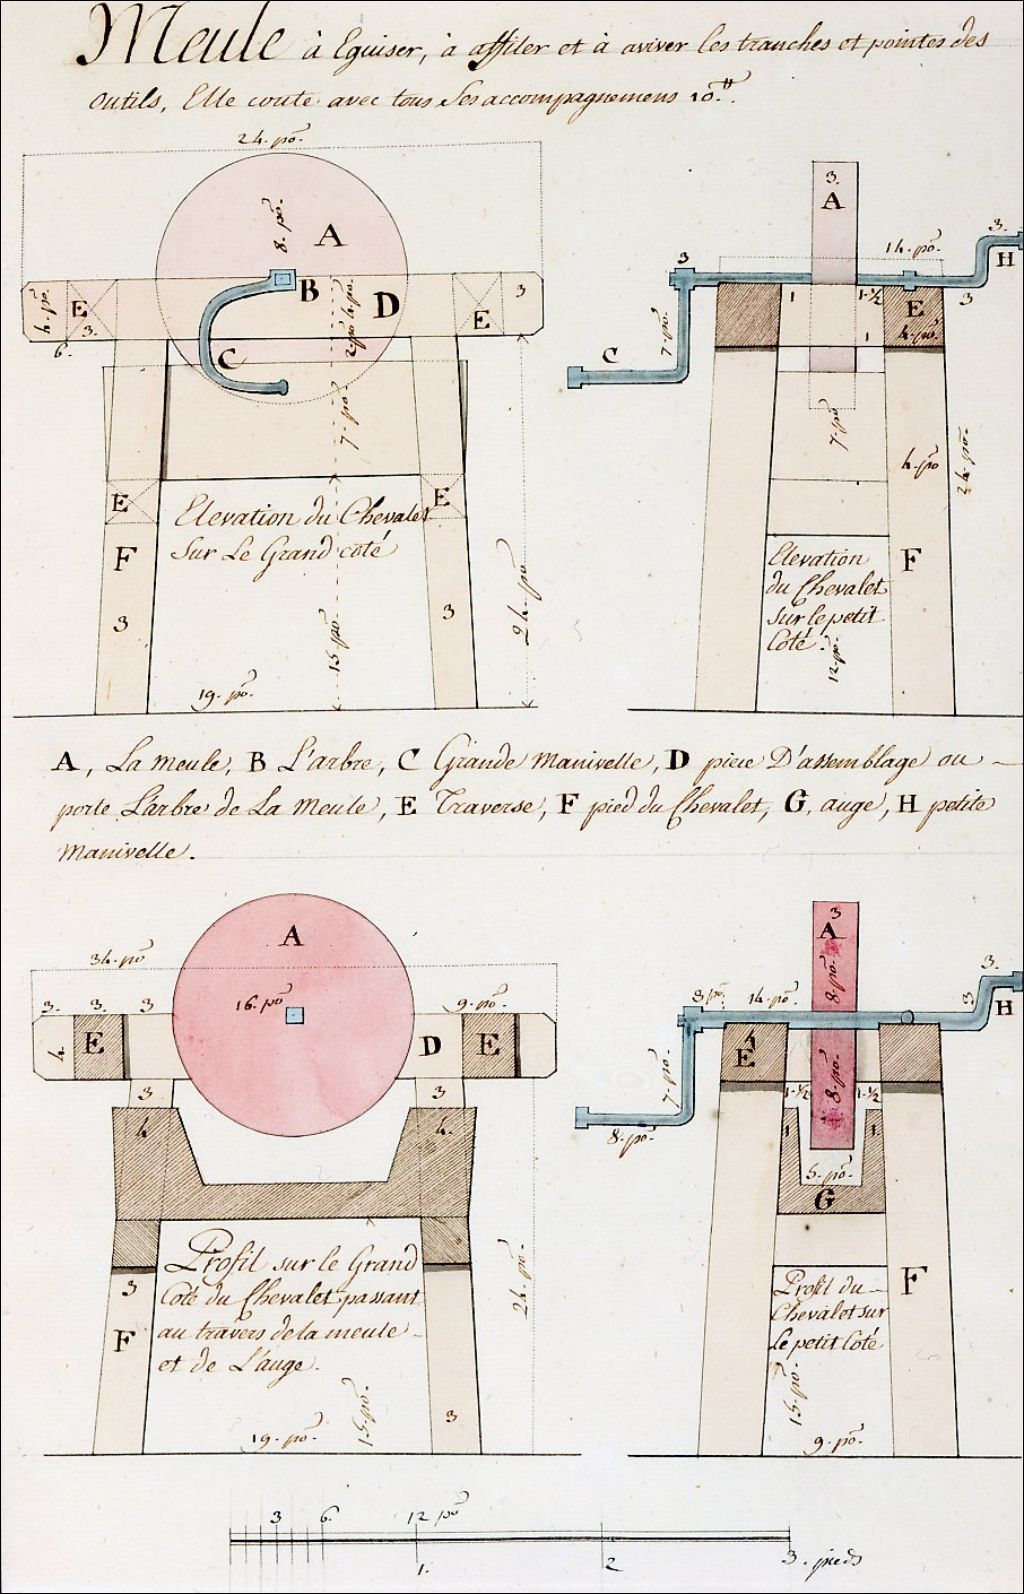 Meule à Eguiser, à affiler et à aviver les tranches et pointes des
outils, Elle coute avec tous Ses accompagnemens 10.
24. po.
8. po.
A
B
D
E
3.
4. po.
6.
E
3
C
7. po
E
E
F
F
3
3
15. po.
24. po.
19. po.
Elevation du Chevalet
Sur Le Grand coté
3.
A
3
14. po.
3.
H
3
1
1-½
E
4. po.
1
7. po
C
7. po
4. po
24. po.
F
Elevation
du Chevalet
Sur le petit
Coté.
12. po.
A, La meule, B L'arbre, C Grande manivelle, D piece D'assemblage ou
porte L'arbre de La Meule, E Traverse, F pied du Chevalet, G, auge, H petite
manivelle.
A
34. po
16. po
9. po.
3. 3. 3
E
4.
D
E
3
3
4
4.
Profil sur le Grand
Coté du Chevalet passant
au travers de la meule
et de L'auge.
3
F
3
15. po.
24. po.
19. po.
3
A
8. po.
3 po.
14. po.
3.
3
H
E
4
7. po
8. po.
8. po.
1-½
1-½
1
1.
5. po.
G
Profil du
Chevalet sur
Le petit Coté
F
15. po.
9. po.
3 6. 12 po
1. 2 3. pieds